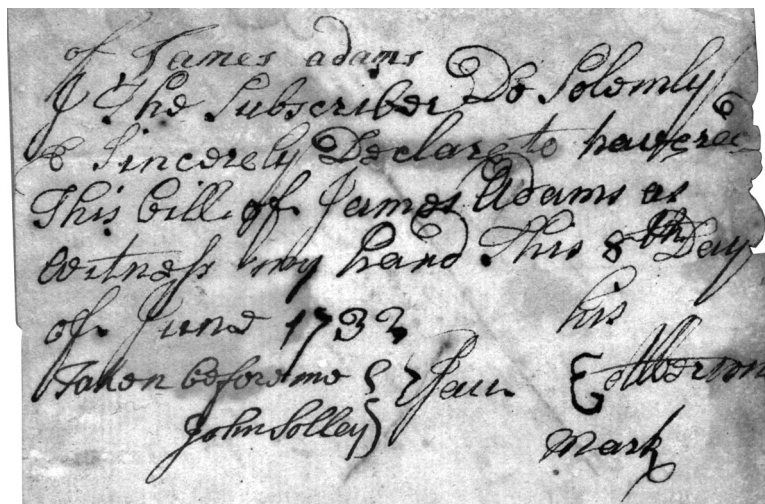 of James adams
I The Subscriber Do Solemly
& Sincerely Declare to have rec
This bill of James Adams as
witness my hand This 8th Day
of June 1732
his
Taken before me
John Solley
mark